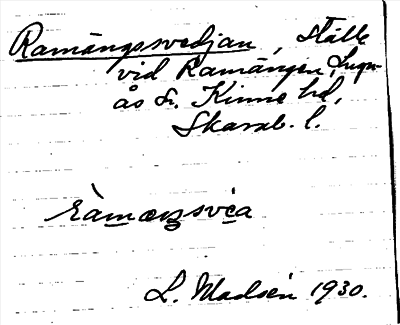 Ramängsvedjan, ställe
vid Ramängen, Lugn-
ås sn. Kinne hd,
Skarab. l.
ràmæŋsve̩a
L. Madsén 1930.